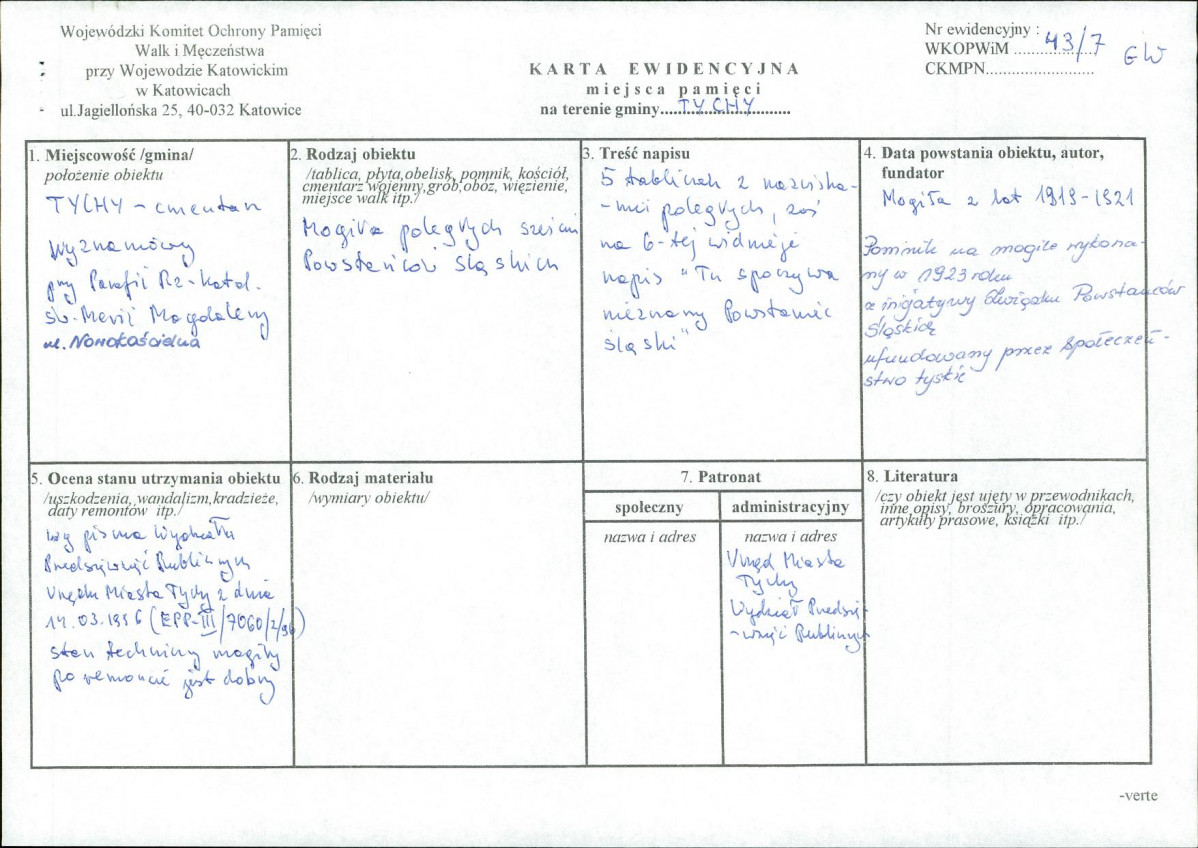 Wojewódzki Komitet Ochrony Pamięci
Walk i Męczeństwa
przy Wojewodzie Katowickim
w Katowicach
ul.Jagiellońska 25, 40-032 Katowice
KARTA EWIDENCYJNA
miejsca pamięci
na terenie gminy....TYCHY..........
Nr ewidencyjny :
WKOPWiM ....43/7
CKMPN..........................
GW
1. Miejscowość /gmina/
położenie obiektu
TYCHY - cmentarz
wyznaniowy
przy Parafii Rz-Katol.
św. Marii Magdaleny
ul. Nowokościelna
2. Rodzaj obiektu
/tablica, płyta,obelisk, pomnik, kościół,
cmentarz wojenny,grób,obóz, więzienie,
miejsce walk itp./
Mogiła poległych sześciu
Powstańców śląskich
3. Treść napisu
5 tablicach z nazwiska-
-mi poległych, zaś
na 6-tej widnieje
napis "Tu spoczywa
nieznany Powstaniec
śląski"
4. Data powstania obiektu, autor,
fundator
Mogiła z lat 1919-1921
Pomnik na mogile wykona-
ny w 1923 roku
z inicjatywy Związku Powstańców
Śląskich
ufundowany przez społeczeń-
stwo tyskie
5. Ocena stanu utrzymania obiektu
/uszkodzenia, wandalizm,kradzieże,
daty remontów itp./
wg pisma Wydziału
Przedsięwzięć Publicznych
Urzędu Miasta Tychy z dnia
14.03.1996 (EPP-III/7060/2/96)
stan techniczny mogiły
po remoncie jest dobry
6. Rodzaj materiału
/wymiary obiektu/
7. Patronat
społeczny
nazwa i adres
administracyjny
nazwa i adres
Urząd Miasta
Tychy
Wydział Przedsię-
-wzięć Publicznych
8. Literatura
/czy obiekt jest ujęty w przewodnikach,
inne opisy, broszury, opracowania,
artykuły prasowe, książki itp./
-verte